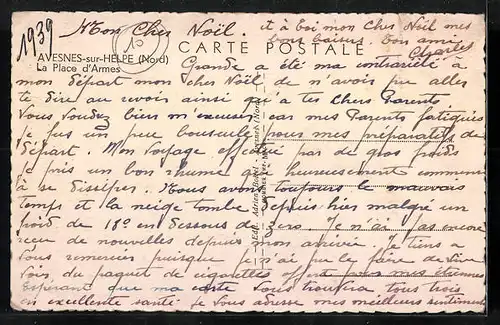 1939
Mon Cher Noël.
et à toi mon Cher Noël mes
bons baisers. Ton ami
Charles
CARTE POSTALE
AVESNES-sur-HELPE (Nord)
La Place d'Armes
Grande a été ma contrariété à
mon départ mon cher Noël de n'avoir pu aller
te dire au revoir ainsi qu'a tes Chers Parents
Vous voudrez bien m'excuser car mes Parents fatigués
je fus un peu bousculé pour mes préparatifs de
départ. Mon voyage effectué par de gros froids
je pris un bon rhume qui heureusement commence
à se dissiper. Nous avons toujours le mauvais
temps et la neige tombe depuis hier malgré un
froid de 18° en dessous de zero. Je n'ai pas encore
reçu de nouvelles depuis mon arrivée. Je tiens à
vous remercier puisque je n'ai pu le faire de vive
voix, du paquet de cigarettes offert pour mes étrennes
Espérant que ma carte vous trouvera tous trois
en excellente santé je vous adresse mes meilleurs sentiments